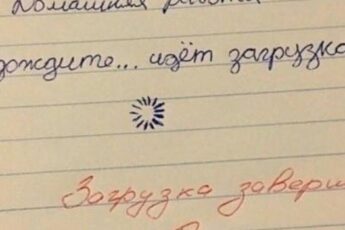 Домашняя работа
дождите... идёт загрузка
Загрузка заверш